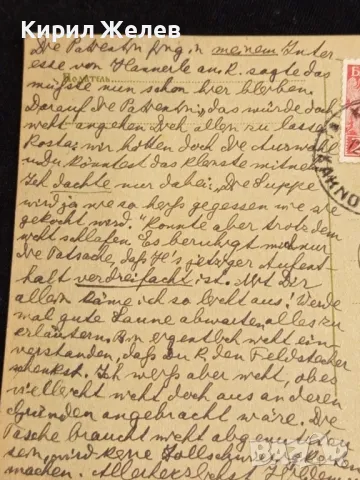 Кирил Желев
Die Patientin fing in meinem Inter-
esse von Hannerle an. R. sagte das
müsste nun schon hier bleiben.
Податель
Darauf die Patientin: „das würde doch
nicht angehen Dich allen zu lassen
Rosta: wir hätten doch die Auswahl
u. du könntest das kleinste mitnehmen
Ich dachte nur dabei: „Die Suppe
wird ja nie so heiss gegessen wie sie
gekocht wird." Konnte aber trotzdem
nicht schlafen. Es beruhigt mich nur
die Tatsache, daß H's jetziger Aufent-
halt verdreifacht ist. Mit Dir
allein käme ich so leicht aus! Werde
mal gute Laune abwarten, alles zu
erläutern. Bin eigentlich nicht ein-
verstanden, daß Du R. den Feldstecher
schenkst. Ich weiß aber nicht, ob es
vielleicht nicht doch aus anderen
Gründen angebracht wäre. Die
Tasche braucht nicht abgenutzt
sein, wird keine Zollschwierigkeiten
machen. Allerherzlichst
bazar.bg